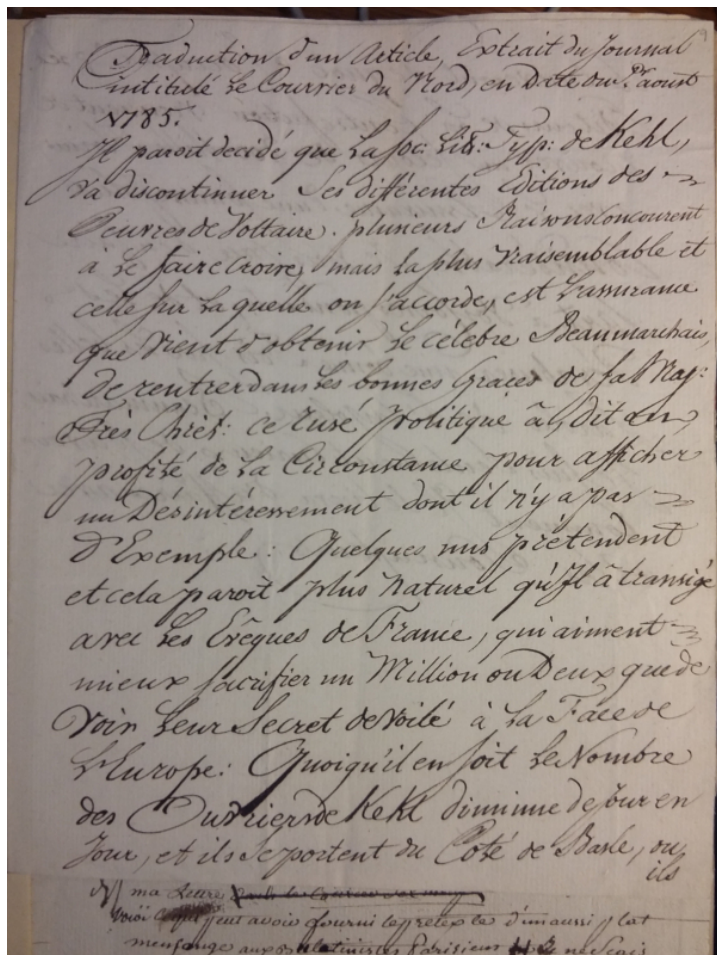 9
Traduction d'un Article, Extrait du Journal
intitulé Le Courrier du Nord, en Date du 1er aoust
1785.
Il paroit decidé que La Soc: Litt: Typ: de Kehl,
va discontinuer Ses différentes Editions des
Oeuvres de Voltaire. plusieurs Raisons Concourent
à Le faire Croire, mais La plus Vraisemblable et
celle sur La quelle on s'accorde, est L'assurance
que Vient d'obtenir Le célebre Beaumarchais,
de rentrer dans Les bonnes Graces de Sa Maj:
Très Chret: ce rusé Politique à, dit on,
profité de La Circonstance pour afficher
un Désintéressement dont il n'y a pas
d'Exemple: Quelques uns prétendent
et cela paroit plus Naturel qu'Il à transigé
avec Les Evêques de France, qui aiment
mieux sacrifier un Million ou Deux que de
Voir Leur Secret devoilé à La Face de
L'Europe: Quoiqu'il en soit Le Nombre
des Ouvriers de Kehl diminue de Jour en
Jour, et ils Se portent du Coté de Basle, ou
ils
ma Lettre
peut avoir fourni le pretexte d'un aussi plat
mensonge aux Bulatinistes Parisiens ne Scais